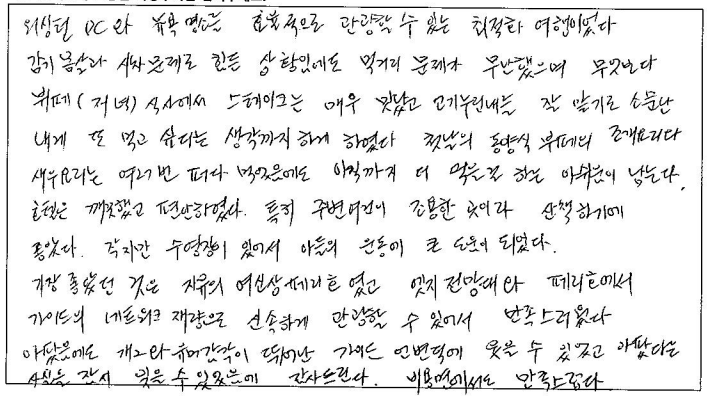 워싱턴 DC와 뉴욕 명소를 효율적으로 관광할 수 있는 최적화 여행이었다
감기 몸살과 시차문제로 힘든 상황임에도 먹거리 문제가 무난했으며 무엇보다
뷔페(저녁) 식사에서 스테이크는 매우 맛났고 고기누린내를 잘 맡기로 소문난
내게 또 먹고 싶다는 생각까지 하게 하였다 첫날의 동양식 뷔페의 조개요리와
새우요리는 여러번 퍼다 먹었음에도 아직까지 더 먹을걸 하는 아쉬움이 남는다.
호텔은 깨끗했고 편안하였다. 특히 주변여건이 조용한 곳이라 산책하기에
좋았다. 작지만 수영장이 있어서 아들의 운동에 큰 도움이 되었다.
가장 좋았던 것은 자유의 여신상 페리호였고 엣지 전망대와 페리호에서
가이드의 네트워크 재량으로 신속하게 관광할 수 있어서 만족스러웠다
아팠음에도 개그와 유머감각이 뛰어난 가이드 언변덕에 웃을 수 있었고 아팠다는
사실을 잠시 잊을 수 있었음에 감사드린다. 비용면에서도 만족스럽다.